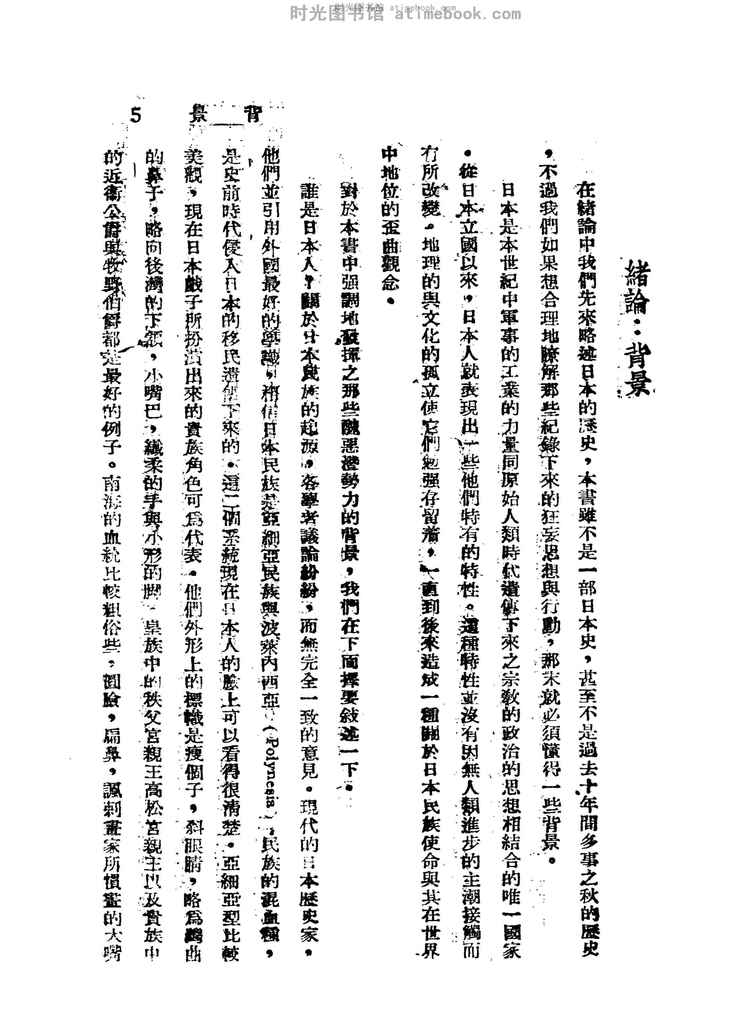 时光图书馆 atimebook.com
时光图书馆 atimebook.com
背景 5
緒論：背景
在緒論中我們先來略述日本的歷史，本書雖不是一部日本史，甚至不是過去十年間多事之秋的歷史
，不過我們如果想合理地瞭解那些紀錄下來的狂妄思想與行動，那末就必須懂得一些背景。
日本是本世紀中軍事的工業的力量同原始人類時代遺傳下來之宗教的政治的思想相結合的唯一國家
。從日本立國以來，日本人就表現出一些他們特有的特性。這種特性並沒有因無人類進步的主潮接觸而
有所改變。地理的與文化的孤立使它們勉强存留着，一直到後來造成一種關於日本民族使命與其在世界
中地位的歪曲觀念。
對於本書中强調地發揮之那些醜惡潛勢力的背景，我們在下面擇要敍述一下。
誰是日本人？關於日本民族的起源，各學者議論紛紛，而無完全一致的意見。現代的日本歷史家，
他們並引用外國最好的學識，相信日本民族是亞細亞民族與波萊內西亞（Polynesia）民族的混血種，
是史前時代侵入日本的移民遺傳下來的。這二個系統現在日本人的臉上可以看得很清楚。亞細亞型比較
美觀，現在日本戲子所扮演出來的貴族角色可爲代表。他們外形上的標幟是瘦個子，斜眼睛，略爲鷹曲
的鼻子，略向後灣的下頷，小嘴巴，纖柔的手與小形的脚。皇族中的秩父宮親王高松宮親王以及貴族中
的近衞公爵與牧野伯爵都是最好的例子。南海的血統比較粗俗些，圓臉，扁鼻，諷刺畫家所慣畫的大嘴